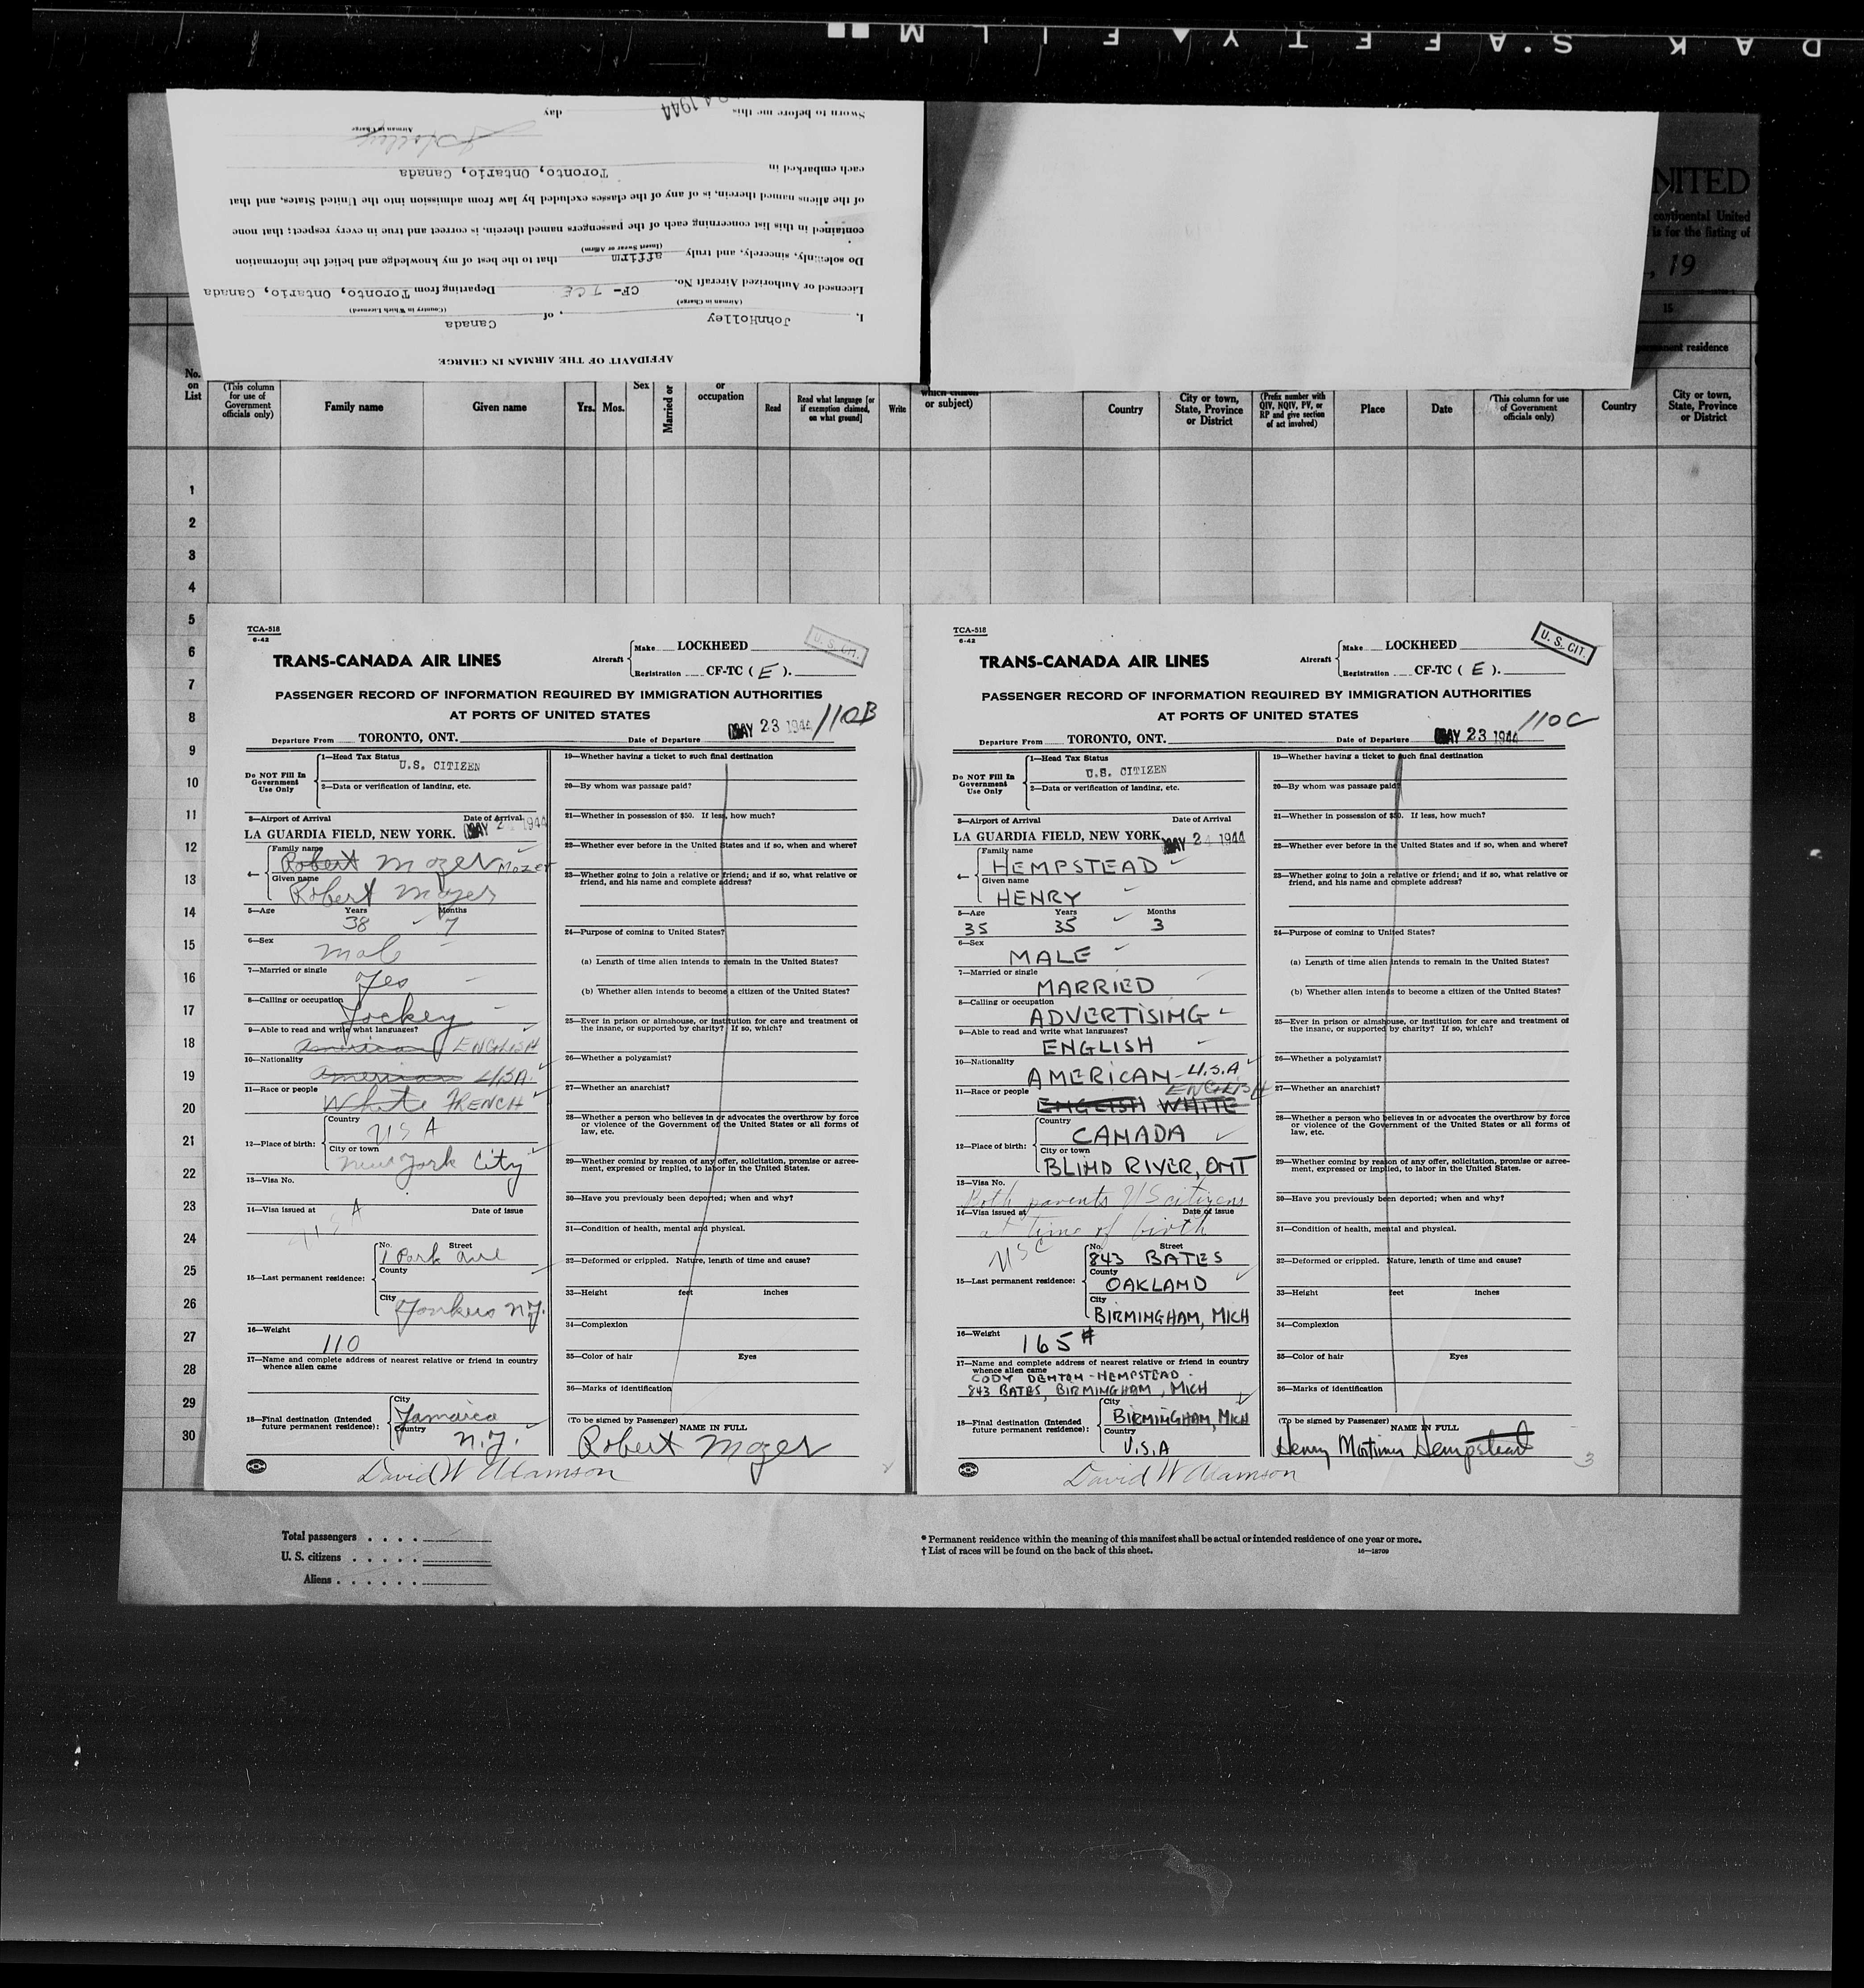 DAK S.AFETY▲FILM■■
AFFIDAVIT OF THE AIRMAN IN CHARGE
I, JohnHolley, of Canada
(Airman in Charge) (Country in Which Licensed)
Licensed or Authorized Aircraft No. CF-TCE Departing from Toronto, Ontario, Canada
Do solemnly, sincerely, and truly affirm that to the best of my knowledge and belief the information
(Insert Swear or Affirm)
contained in this list concerning each of the passengers named therein, is correct and true in every respect; that none
of the aliens named therein, is of any of the classes excluded by law from admission into the United States, and that
each embarked in Toronto, Ontario, Canada
Airman in Charge
Sworn to before me this 1944 day
NITED
continental United
is for the listing of
, 19
15
permanent residence
No. on List
(This column for use of Government officials only)
Family name
Given name
Yrs.
Mos.
Sex
Married or
or occupation
Read
Read what language [or if exemption claimed, on what ground]
Write
which citizen or subject)
Country
City or town, State, Province or District
(Prefix number with QIV, NQIV, PV, or RP and give section of act involved)
Place
Date
(This column for use of Government officials only)
Country
City or town, State, Province or District
1
2
3
4
5
6
7
8
9
10
11
12
13
14
15
16
17
18
19
20
21
22
23
24
25
26
27
28
29
30
TCA-518
6-42
TRANS-CANADA AIR LINES
Aircraft
Make LOCKHEED
Registration CF-TC ( E ).
U. S. CIT.
PASSENGER RECORD OF INFORMATION REQUIRED BY IMMIGRATION AUTHORITIES
AT PORTS OF UNITED STATES
110B
Departure From TORONTO, ONT. Date of Departure MAY 23 1944
Do NOT Fill In Government Use Only
1—Head Tax Status
U.S. CITIZEN
2—Data or verification of landing, etc.
3—Airport of Arrival Date of Arrival
LA GUARDIA FIELD, NEW YORK. MAY 24 1944
Family name
Robert Mozer Mozer
Given name
Robert Mozer
5—Age Years Months
38 7
6—Sex
male
7—Married or single
Yes
8—Calling or occupation
Jockey
9—Able to read and write what languages?
American ENGLISH
10—Nationality
American USA.
11—Race or people
White FRENCH
12—Place of birth:
Country
USA
City or town
New York City
13—Visa No.
14—Visa issued at Date of issue
USA
15—Last permanent residence:
No. Street
1 Park Ave
County
City
Yonkers N.Y.
16—Weight
110
17—Name and complete address of nearest relative or friend in country
whence alien came
18—Final destination (Intended future permanent residence):
City
Jamaica
Country
N.Y.
19—Whether having a ticket to such final destination
20—By whom was passage paid?
21—Whether in possession of $50. If less, how much?
22—Whether ever before in the United States and if so, when and where?
23—Whether going to join a relative or friend; and if so, what relative or
friend, and his name and complete address?
24—Purpose of coming to United States?
(a) Length of time alien intends to remain in the United States?
(b) Whether alien intends to become a citizen of the United States?
25—Ever in prison or almshouse, or institution for care and treatment of
the insane, or supported by charity? If so, which?
26—Whether a polygamist?
27—Whether an anarchist?
28—Whether a person who believes in or advocates the overthrow by force
or violence of the Government of the United States or all forms of
law, etc.
29—Whether coming by reason of any offer, solicitation, promise or agree-
ment, expressed or implied, to labor in the United States.
30—Have you previously been deported; when and why?
31—Condition of health, mental and physical.
32—Deformed or crippled. Nature, length of time and cause?
33—Height feet inches
34—Complexion
35—Color of hair Eyes
36—Marks of identification
(To be signed by Passenger)
NAME IN FULL
Robert Mozer
David W Adamson
2
TCA-518
6-42
TRANS-CANADA AIR LINES
Aircraft
Make LOCKHEED
Registration CF-TC ( E ).
U. S. CIT.
PASSENGER RECORD OF INFORMATION REQUIRED BY IMMIGRATION AUTHORITIES
AT PORTS OF UNITED STATES
110C
Departure From TORONTO, ONT. Date of Departure MAY 23 1944
Do NOT Fill In Government Use Only
1—Head Tax Status
U.S. CITIZEN
2—Data or verification of landing, etc.
3—Airport of Arrival Date of Arrival
LA GUARDIA FIELD, NEW YORK. MAY 24 1944
Family name
HEMPSTEAD
Given name
HENRY
5—Age Years Months
35 35 3
6—Sex
MALE
7—Married or single
MARRIED
8—Calling or occupation
ADVERTISING
9—Able to read and write what languages?
ENGLISH
10—Nationality
AMERICAN - U.S.A
11—Race or people
ENGLISH
ENGLISH WHITE
12—Place of birth:
Country
CANADA
City or town
BLIND RIVER, ONT
13—Visa No.
Both parents US citizens
14—Visa issued at Date of issue
at time of birth
USC
15—Last permanent residence:
No. Street
843 BATES
County
OAKLAND
City
BIRMINGHAM, MICH
16—Weight
165#
17—Name and complete address of nearest relative or friend in country
whence alien came
CODY DENTON-HEMPSTEAD.
843 BATES, BIRMINGHAM, MICH
18—Final destination (Intended future permanent residence):
City
BIRMINGHAM, MICH
Country
U.S.A
19—Whether having a ticket to such final destination
20—By whom was passage paid?
21—Whether in possession of $50. If less, how much?
22—Whether ever before in the United States and if so, when and where?
23—Whether going to join a relative or friend; and if so, what relative or
friend, and his name and complete address?
24—Purpose of coming to United States?
(a) Length of time alien intends to remain in the United States?
(b) Whether alien intends to become a citizen of the United States?
25—Ever in prison or almshouse, or institution for care and treatment of
the insane, or supported by charity? If so, which?
26—Whether a polygamist?
27—Whether an anarchist?
28—Whether a person who believes in or advocates the overthrow by force
or violence of the Government of the United States or all forms of
law, etc.
29—Whether coming by reason of any offer, solicitation, promise or agree-
ment, expressed or implied, to labor in the United States.
30—Have you previously been deported; when and why?
31—Condition of health, mental and physical.
32—Deformed or crippled. Nature, length of time and cause?
33—Height feet inches
34—Complexion
35—Color of hair Eyes
36—Marks of identification
(To be signed by Passenger)
NAME IN FULL
Henry Mortimer Hempstead
David W Adamson
3
Total passengers . . . .
U. S. citizens . . . . .
Aliens . . . . . .
* Permanent residence within the meaning of this manifest shall be actual or intended residence of one year or more.
† List of races will be found on the back of this sheet.
16—18709